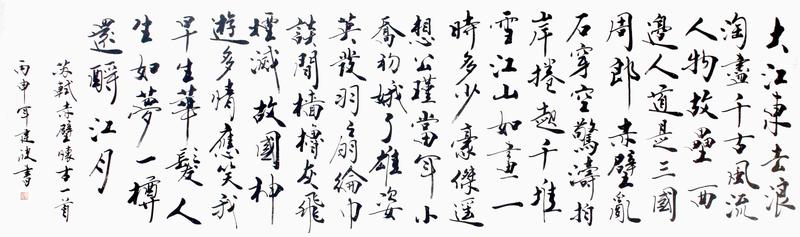 大江東去浪
淘盡千古風流
人物故壘西
邊人道是三國
周郎赤壁亂
石穿空驚濤拍
岸捲起千堆
雪江山如畫一
時多少豪傑遥
想公瑾當年小
喬初嫁了雄姿
英發羽扇綸巾
談間檣櫓灰飛
煙滅故國神
遊多情應笑我
早生華髮人
生如夢一樽
還酹江月
蘇軾赤壁懷古一首
丙申年建波書